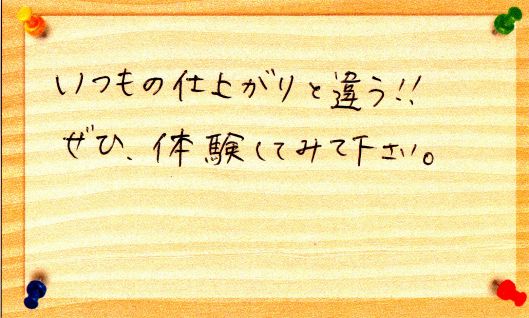 いつもの仕上がりと違う!!
ぜひ、体験してみて下さい。